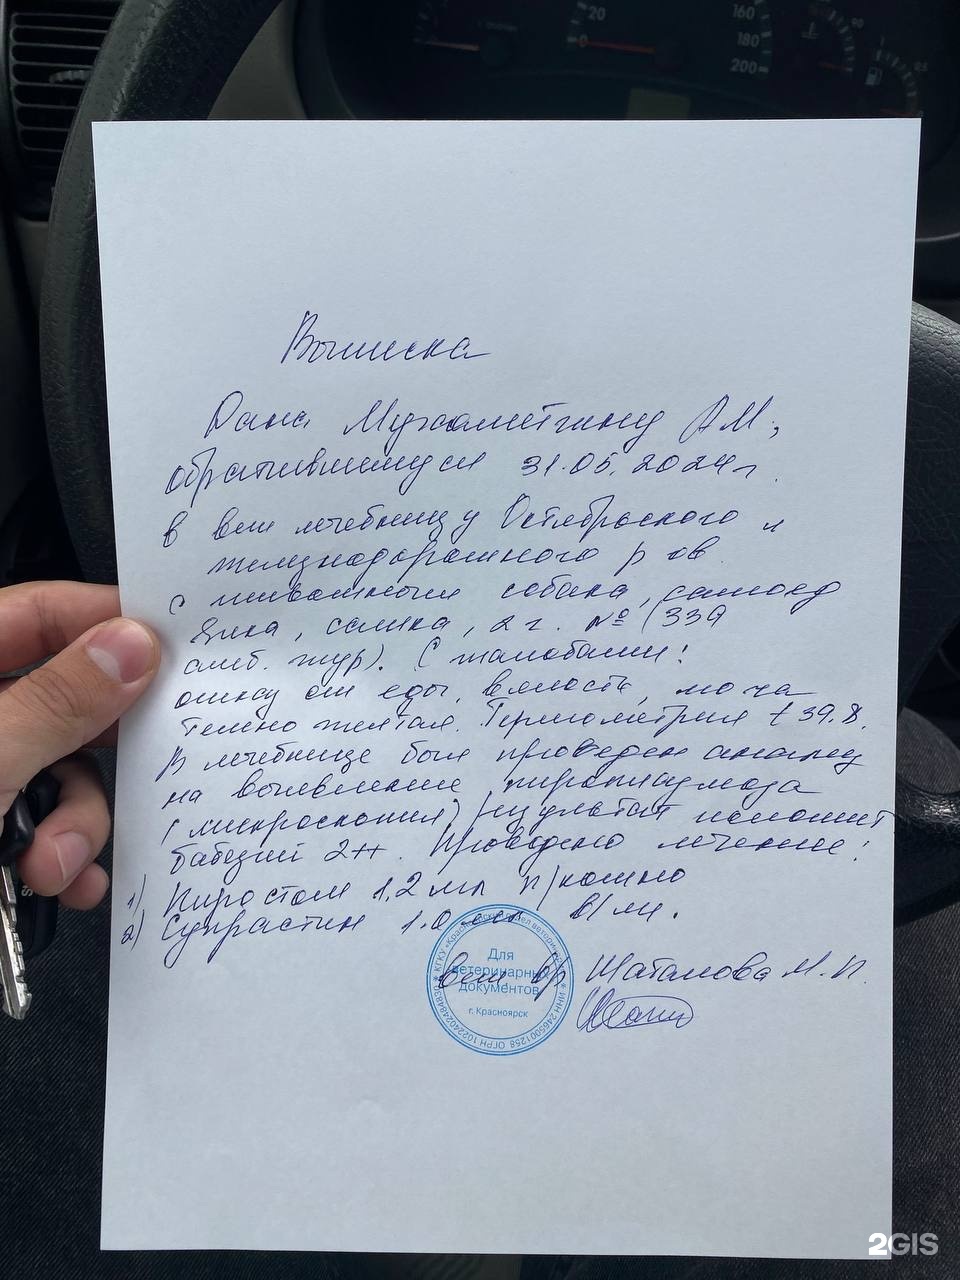 20
160
180
200
Выписка
Дана Мухаметгину А.М.,
обратившемуся 31.05.2024г.
в вет лечебницу Октябрьского и
железнодорожного р-ов
с животным собака, самоед
самка, 2 г. № (339
амб. жур). С жалобами:
отказ от еды, вялость, моча
темно желтая. Термометрия t 39.8.
В лечебнице был проведен анализ
на выявление пироплазмоза
(микроскопия) результат положит
бабезий 2++. Проведено лечение:
1) Пиростоп 1,2 мл п/кожно
2) Супрастин 1.0 мл в/м.
вет вр Шаталова М.П.
Для
ветеринарных
документов
г. Красноярск
ИНН 2465001258 ОГРН 1022402484830 КГКУ «Красноярский отдел ветеринарии»
2GIS